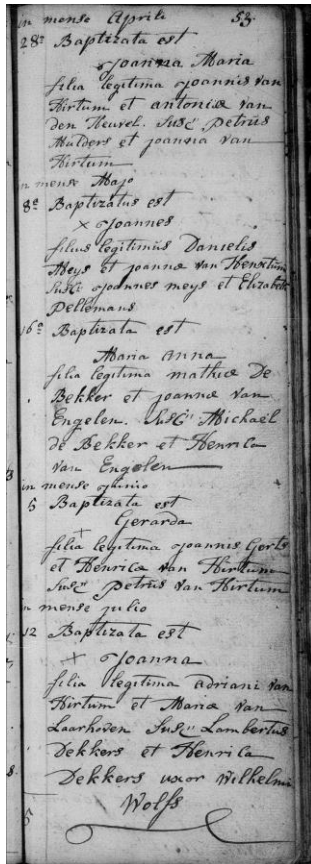 in mense Aprili 53
28ª Baptizata est
Joanna Maria
filia legitima Joannis van
Hirtum et antoniæ van
den Heuvel. Susc: Petrus
Mulders et joanna van
Hirtum
in mense Majo
8ª Baptizatus est
× Joannes
filius legitimus Danielis
Meys et joannæ van
Susc: Joannes meys et Elizabeth
Pellemans
16ª Baptizata est
Maria anna
filia legitima mathiæ De
Bekker et joannæ van
Engelen. Susc: Michaël
de Bekker et Henrica
van Engelen
in mense Junio
5 Baptizata est
+ Gerarda
filia legitima Joannis Gorts
et Henricæ van Hirtum
Susc: Petrus van Hirtum
in mense julio
12 Baptizata est
+ Joanna
filia legitima adriani van
Hirtum et Mariæ van
Laarhoven Susc: Lambertus
Dekkers et Henrica
Dekkers uxor Wilhelmi
Wolfs